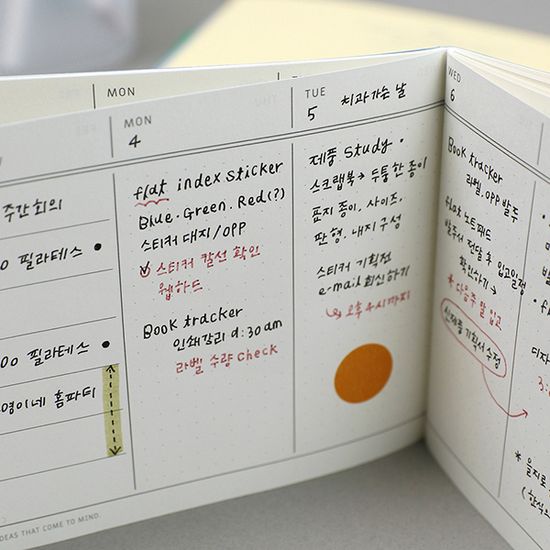 MON
MON
4
TUE
5 치과가는 날
WED
6
주간회의
00 필라테스
00 필라테스
영이네 홈파티
flat index sticker
Blue. Green. Red(?)
스티커 대지/OPP
스티커 칼선 확인
웹하드
Book tracker
인쇄감리 9:30am
라벨 수량 check
제품 Study
스크랩북 → 두툼한 종이
표지 종이, 사이즈,
판형, 내지 구성
스티커 기획전
e-mail 회신하기
오후 4시까지
Book tracker
라벨, OPP 발주
flat 노트패드
발주서 전달 후 입고일정
확인하기
* 다음주 말 입고
신제품 기획서 수정
디자
3.
* 을지로
(한식
DEAS THAT COME TO MIND.